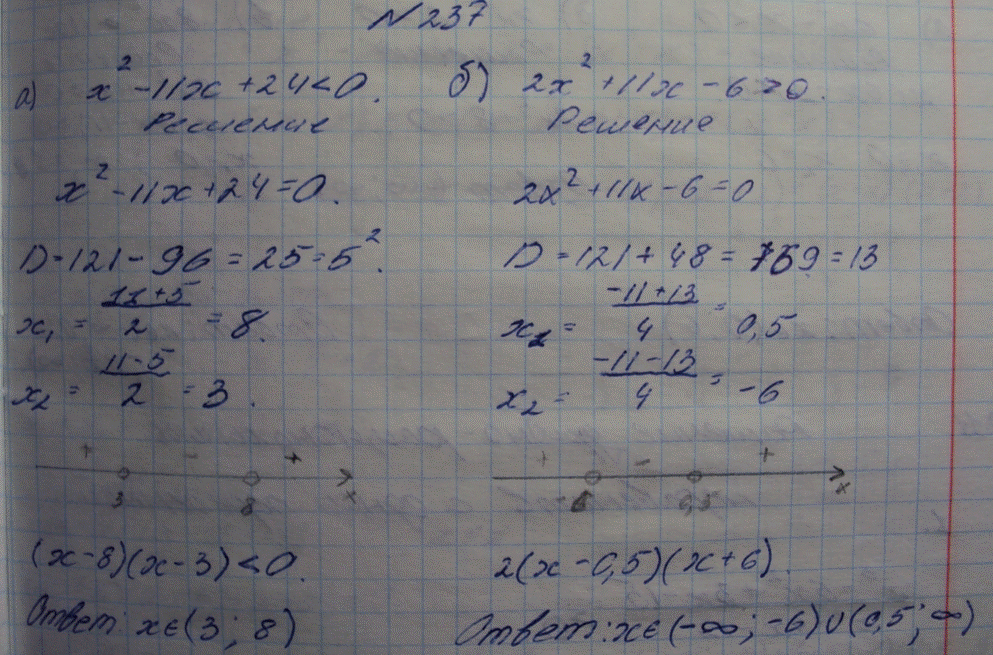 N 237
а) x² - 11x + 24 < 0.
Решение
x² - 11x + 24 = 0.
D = 121 - 96 = 25 = 5².
x₁ = (11 + 5)/2 = 8.
x₂ = (11 - 5)/2 = 3.
+ - +
3 8 x
(x - 8)(x - 3) < 0.
Ответ: x ∈ (3; 8)
б) 2x² + 11x - 6 > 0.
Решение
2x² + 11x - 6 = 0
D = 121 + 48 = 169 = 13
x₂ = (-11 + 13)/4 = 0,5
x₂ = (-11 - 13)/4 = -6
+ - +
6 0,5 x
2(x - 0,5)(x + 6).
Ответ: x ∈ (-∞; -6) ∪ (0,5; ∞)